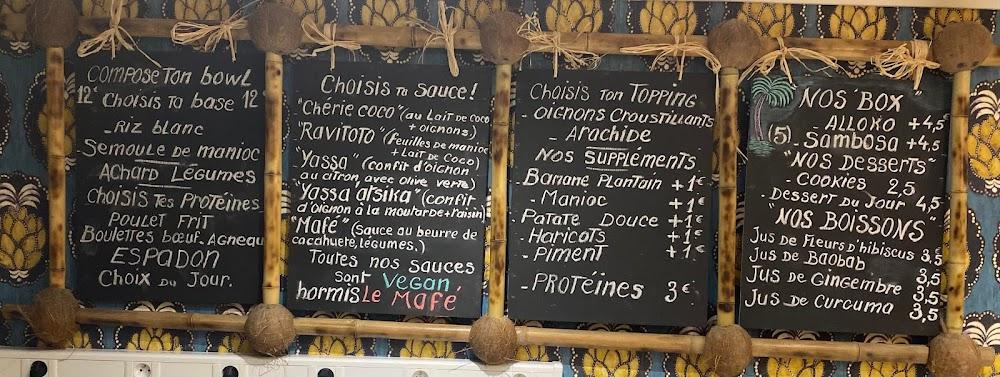 COMPOSE TON bowl
12 Choisis TA base 12
- Riz blanc
Semoule de manioc
Achard Légumes
Choisis Tes Protéines
Poulet Frit
Boulettes bœuf. Agneau
ESPADON
Choix Du Jour.
Choisis Ta Sauce!
"Chérie coco" (au Lait de Coco
+ oignons)
"RAVITOTO" (feuilles de manioc
+ Lait de coco)
"Yassa" (confit d'oignon
au citron, avec olive verte)
"Yassa atsika" (confit
d'oignon à la moutarde+raisin)
"Mafé" (Sauce au beurre de
cacahuète, légumes.)
Toutes nos sauces
sont Vegan
hormis Le Mafé
Choisis Ton TOPPING
- Oignons Croustillants
- Arachide
Nos SUPPLÉMENTS
- Banane Plantain +1€
- Manioc +1€
- Patate Douce +1€
- Haricots +1€
- Piment +1€
- PROTÉINES 3€
"NOS BOX"
ALLOKO +4,5
(5) Sambosa +4,5
"NOS DESSERTS"
- Cookies 2,5
- Dessert Du Jour 4,5
"NOS BOISSONS"
Jus de Fleurs D'hibiscus 3,5
Jus de Baobab 3,5
Jus de Gingembre 3,5
Jus De Curcuma 3,5